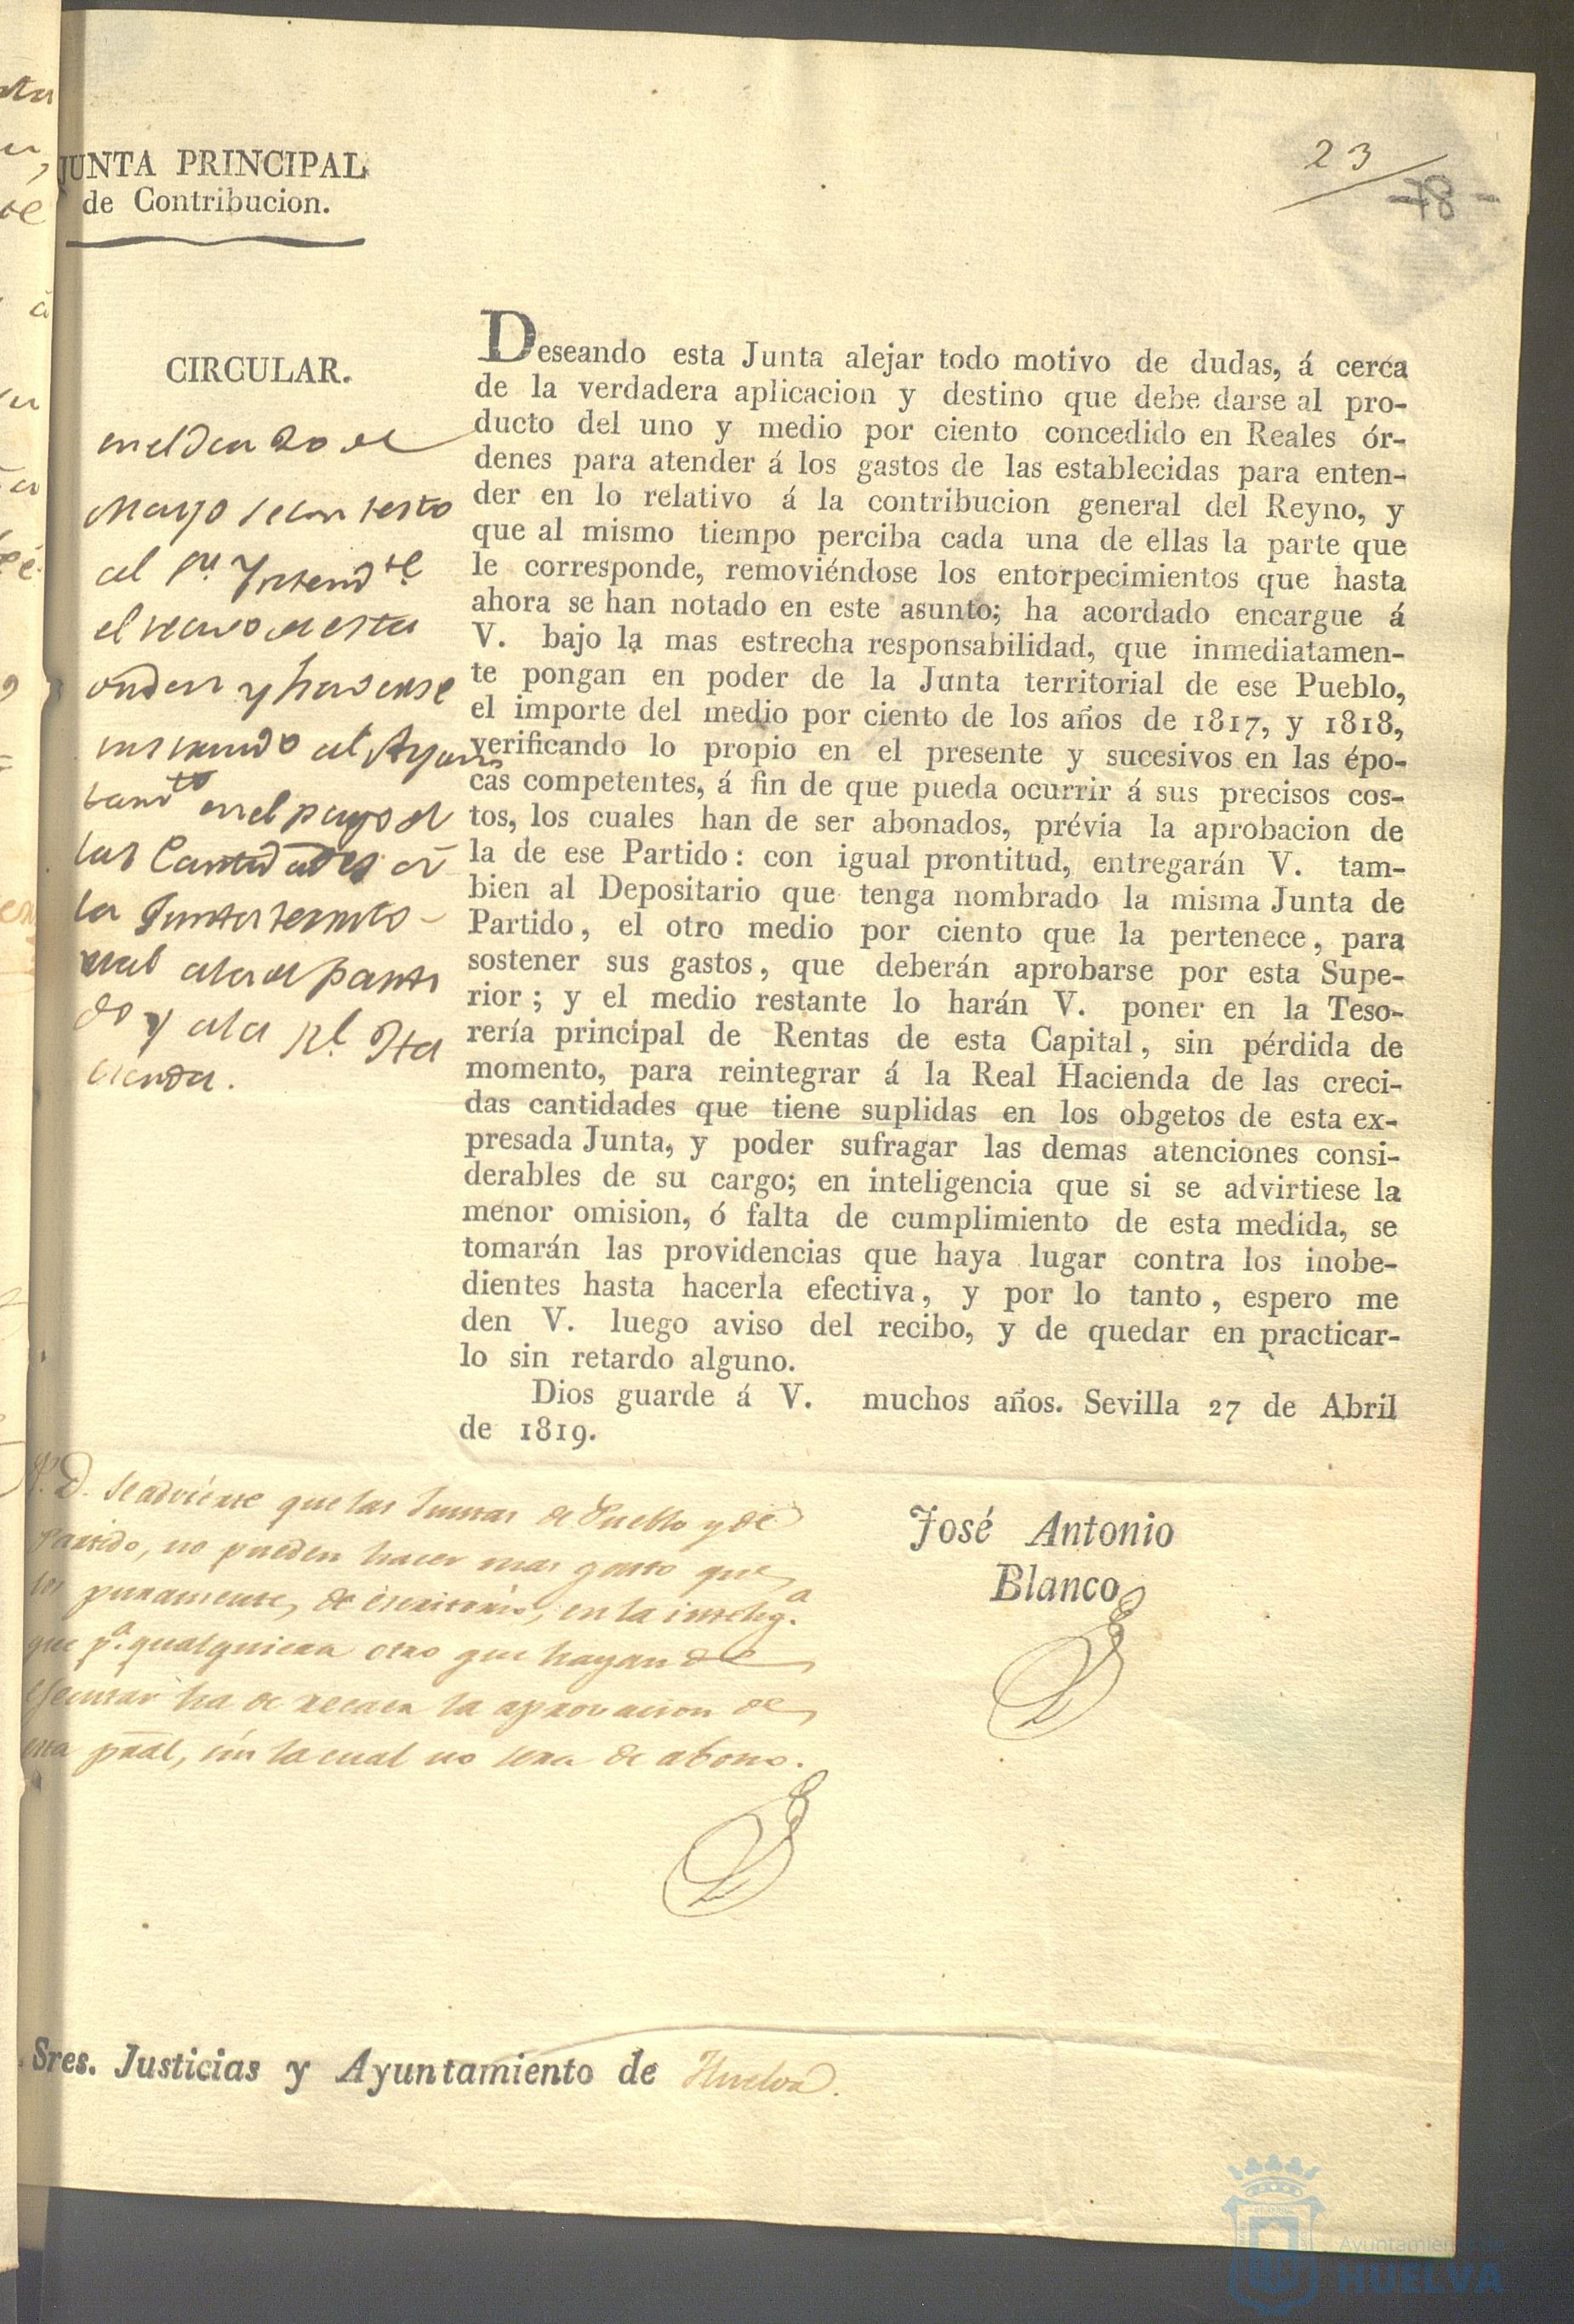 23
-78-
JUNTA PRINCIPAL
de Contribucion.
CIRCULAR.
en el dia 20 de
Mayo se contesto
al Sr. Yntendte
el recivo de esta
orden y haverse
al Ayun
tamto en el pago de
las Cantidades a
la Junta territo-
rial a la de parti
do y a la Rl. Ha
cienda.
Deseando esta Junta alejar todo motivo de dudas, á cerca
de la verdadera aplicacion y destino que debe darse al pro-
ducto del uno y medio por ciento concedido en Reales ór-
denes para atender á los gastos de las establecidas para enten-
der en lo relativo á la contribucion general del Reyno, y
que al mismo tiempo perciba cada una de ellas la parte que
le corresponde, removiéndose los entorpecimientos que hasta
ahora se han notado en este asunto; ha acordado encargue á
V. bajo la mas estrecha responsabilidad, que inmediatamen-
te pongan en poder de la Junta territorial de ese Pueblo,
el importe del medio por ciento de los años de 1817, y 1818,
verificando lo propio en el presente y sucesivos en las épo-
cas competentes, á fin de que pueda ocurrir á sus precisos cos-
tos, los cuales han de ser abonados, prévia la aprobacion de
la de ese Partido: con igual prontitud, entregarán V. tam-
bien al Depositario que tenga nombrado la misma Junta de
Partido, el otro medio por ciento que la pertenece, para
sostener sus gastos, que deberán aprobarse por esta Supe-
rior; y el medio restante lo harán V. poner en la Teso-
rería principal de Rentas de esta Capital, sin pérdida de
momento, para reintegrar á la Real Hacienda de las creci-
das cantidades que tiene suplidas en los obgetos de esta ex-
presada Junta, y poder sufragar las demas atenciones consi-
derables de su cargo; en inteligencia que si se advirtiese la
menor omision, ó falta de cumplimiento de esta medida, se
tomarán las providencias que haya lugar contra los inobe-
dientes hasta hacerla efectiva, y por lo tanto, espero me
den V. luego aviso del recibo, y de quedar en practicar-
lo sin retardo alguno.
Dios guarde á V. muchos años. Sevilla 27 de Abril
de 1819.
José Antonio
Blanco
P. D. Se advierte que las Juntas de Pueblo y de
Partido, no pueden hacer mas gasto que
los puramente, de escritorio, en la intelig.a
que p.a qualquiera otro que hayan de
ejecutar ha de recaer la aprovacion de
esta pral, sin la cual no sera de abono.
Sres. Justicias y Ayuntamiento de Huelva.
Ayuntamiento de
HUELVA